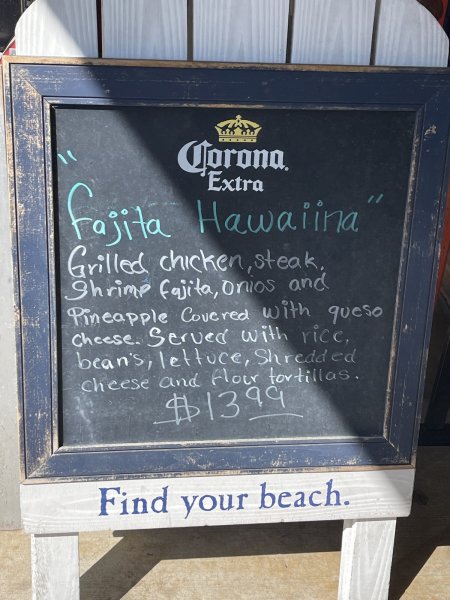 Corona.
Extra
"Fajita Hawaiiina"
Grilled chicken, steak,
Shrimp fajita, onios and
Pineapple Covered with queso
cheese. Served with rice,
bean's, lettuce, Shredded
cheese and flour tortillas.
$13.99
Find your beach.